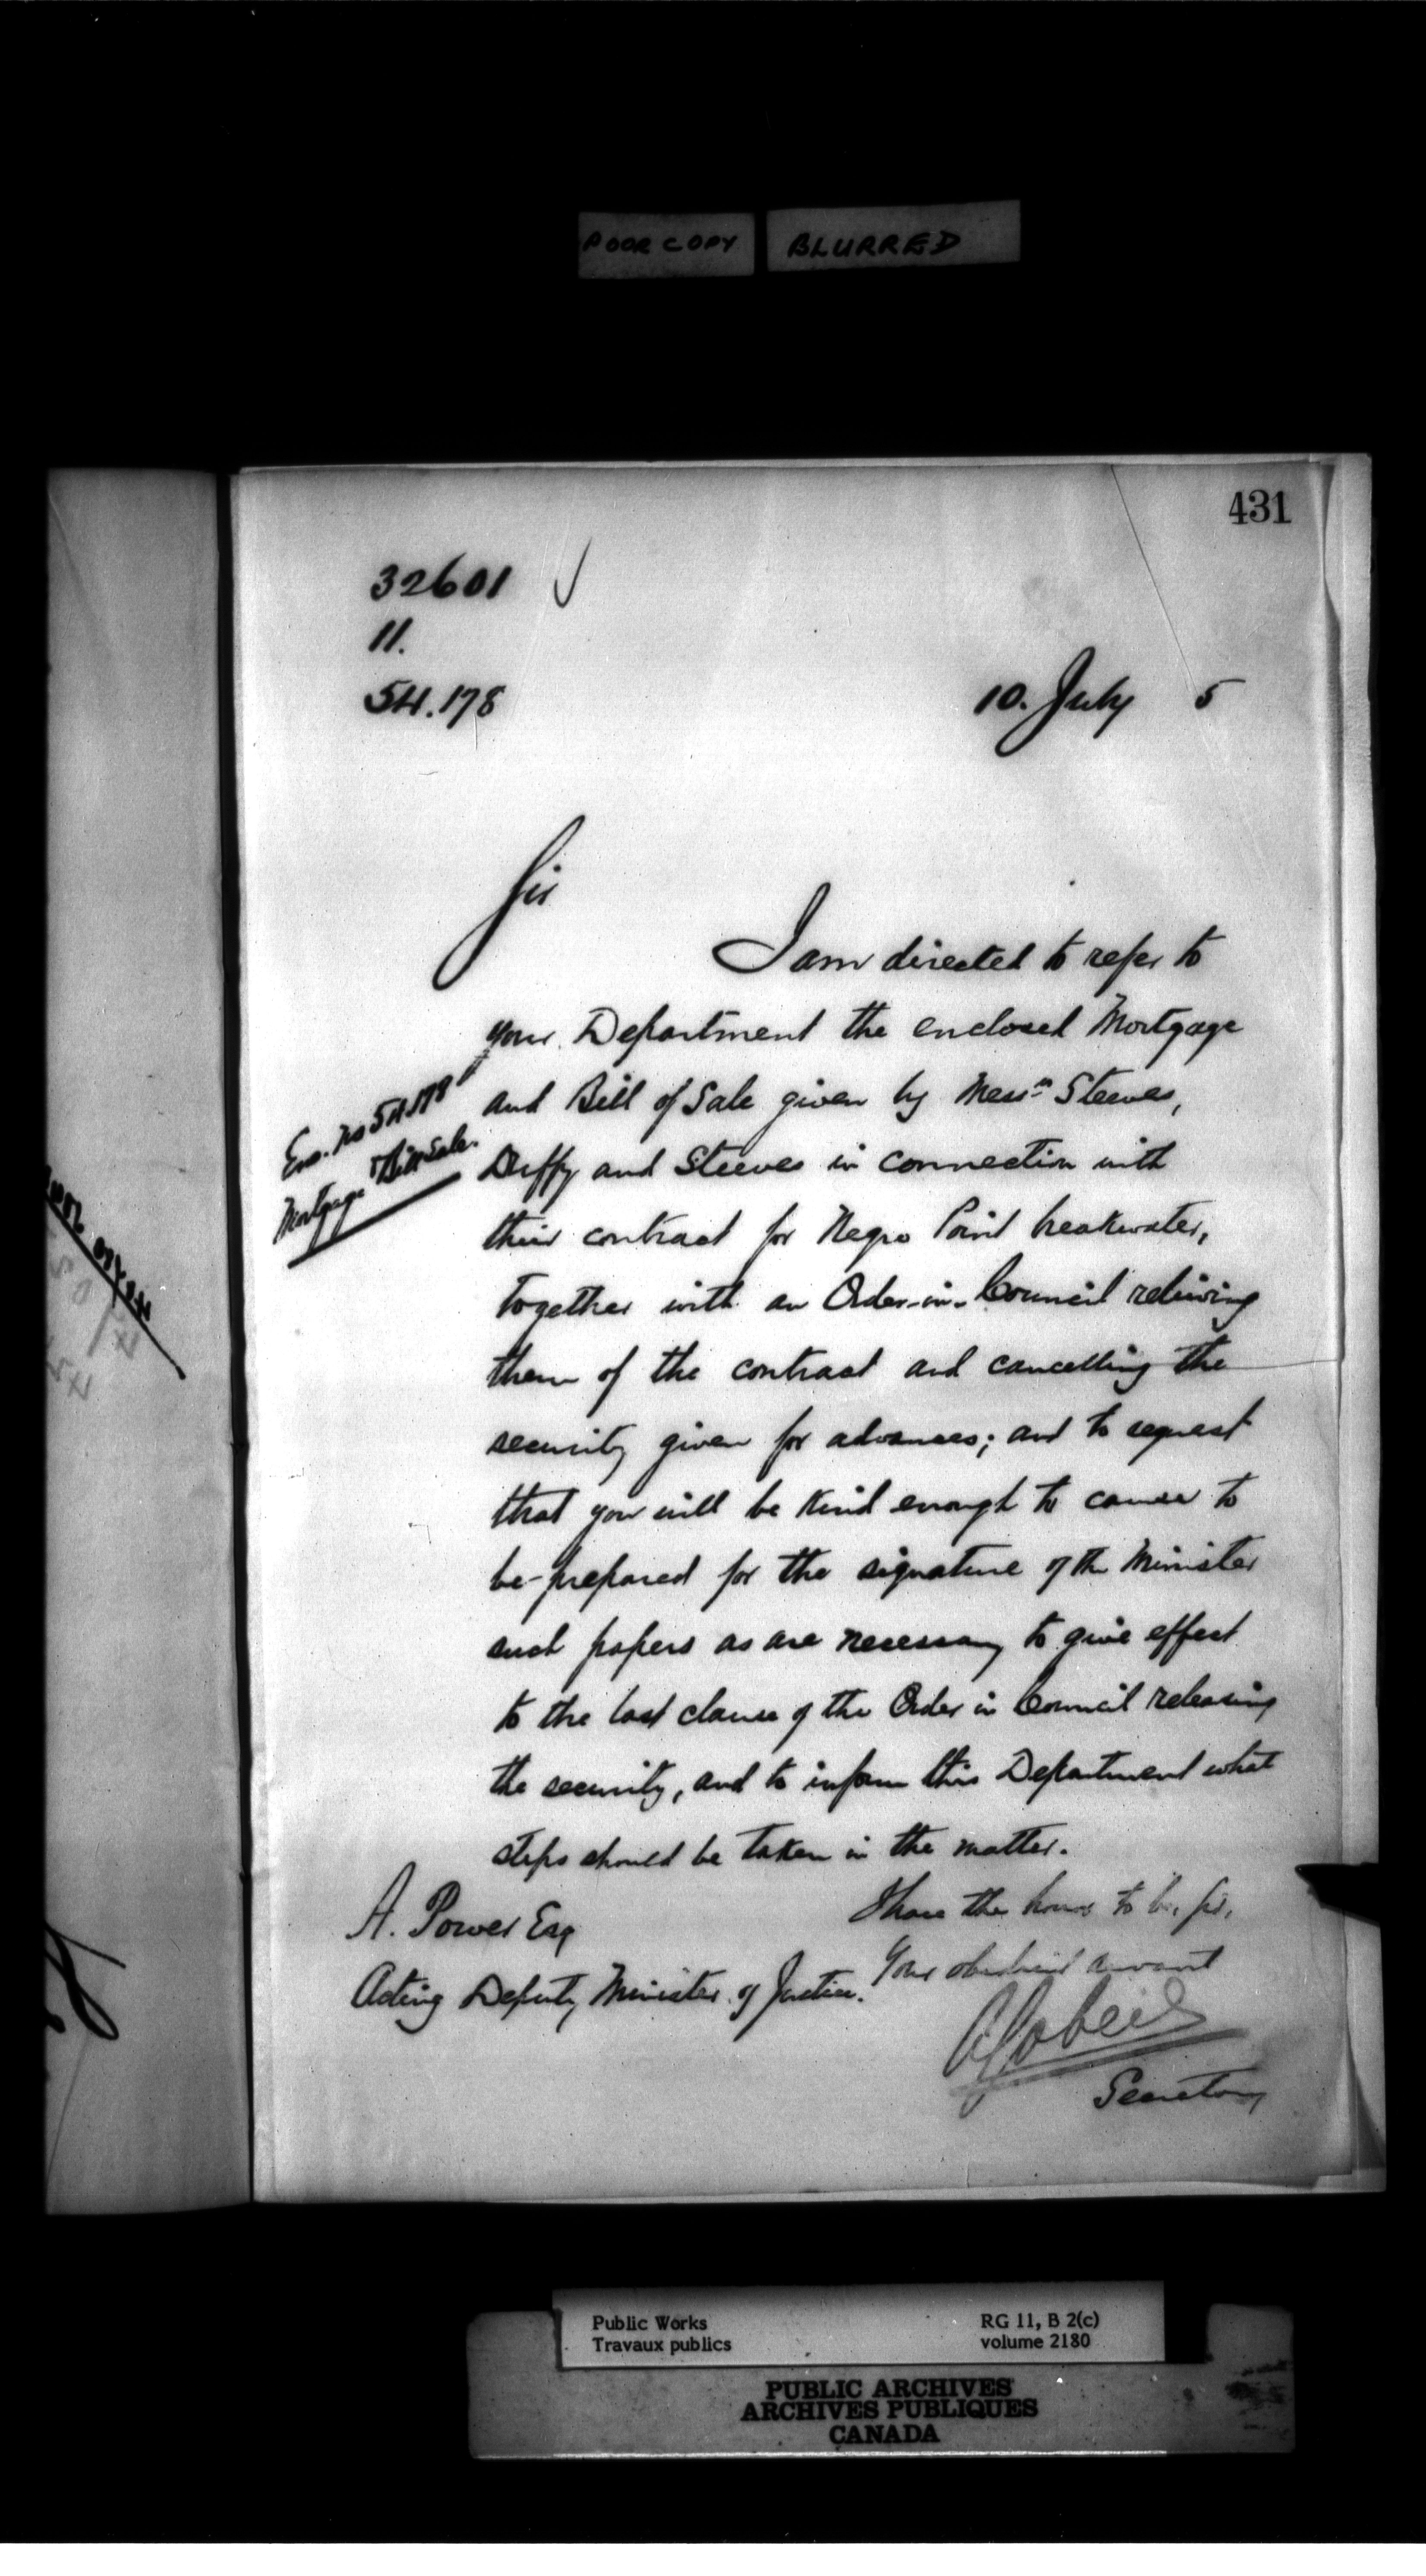 POOR COPY BLURRED
431
32601
11.
54.178
10. July 5
Sir
I am directed to refer to
your Department the enclosed Mortgage
and Bill of Sale given by Messrs Steeves,
Enc. No 54178
Mortgage & Bill Sale.
Duffy and Steeves in connection with
their contract for Negro Point breakwater,
together with an Order-in-Council relieving
them of the contract and cancelling the
security given for advances; and to request
that you will be kind enough to cause to
be prepared for the signature of the Minister
such papers as are necessary to give effect
to the last clause of the Order in Council releasing
the security, and to inform this Department what
steps should be taken in the matter.
I have the honor to be, Sir,
A. Power Esq
Your obedient servant
Acting Deputy Minister of Justice.
A Gobeil
Secretary
Public Works
Travaux publics
RG 11, B 2(c)
volume 2180
PUBLIC ARCHIVES
ARCHIVES PUBLIQUES
CANADA